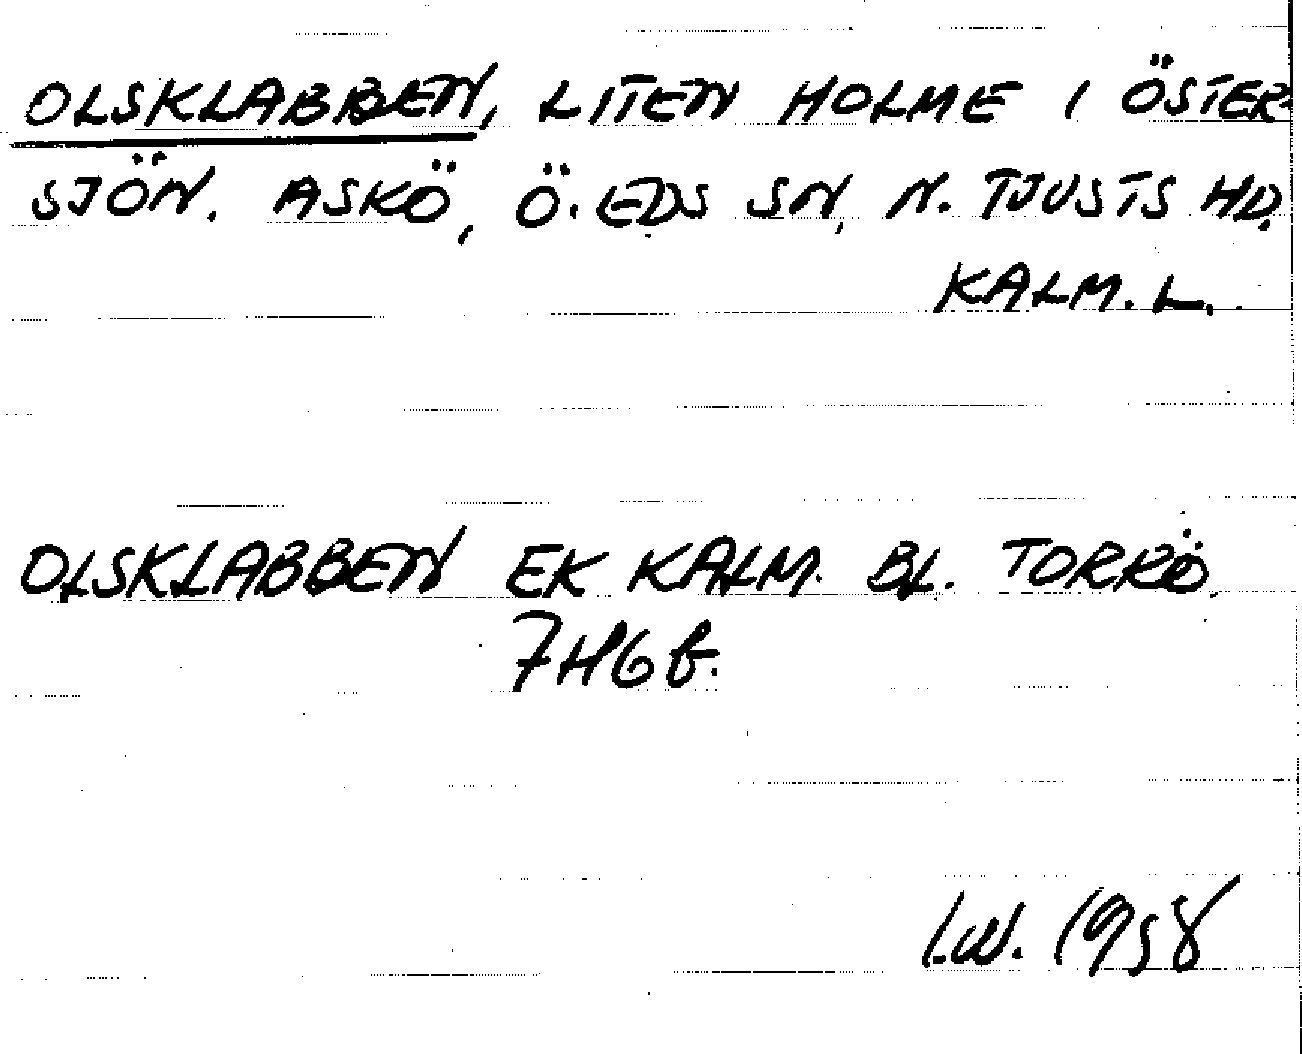 OLSKLABBEN, LITEN HOLME I ÖSTER-
SJÖN. ASKÖ, Ö. EDS SN, N. TJUSTS HD.
KALM. L.
OLSKLABBEN EK KALM. BL. TORRÖ.
7H6b.
I.W. 1958